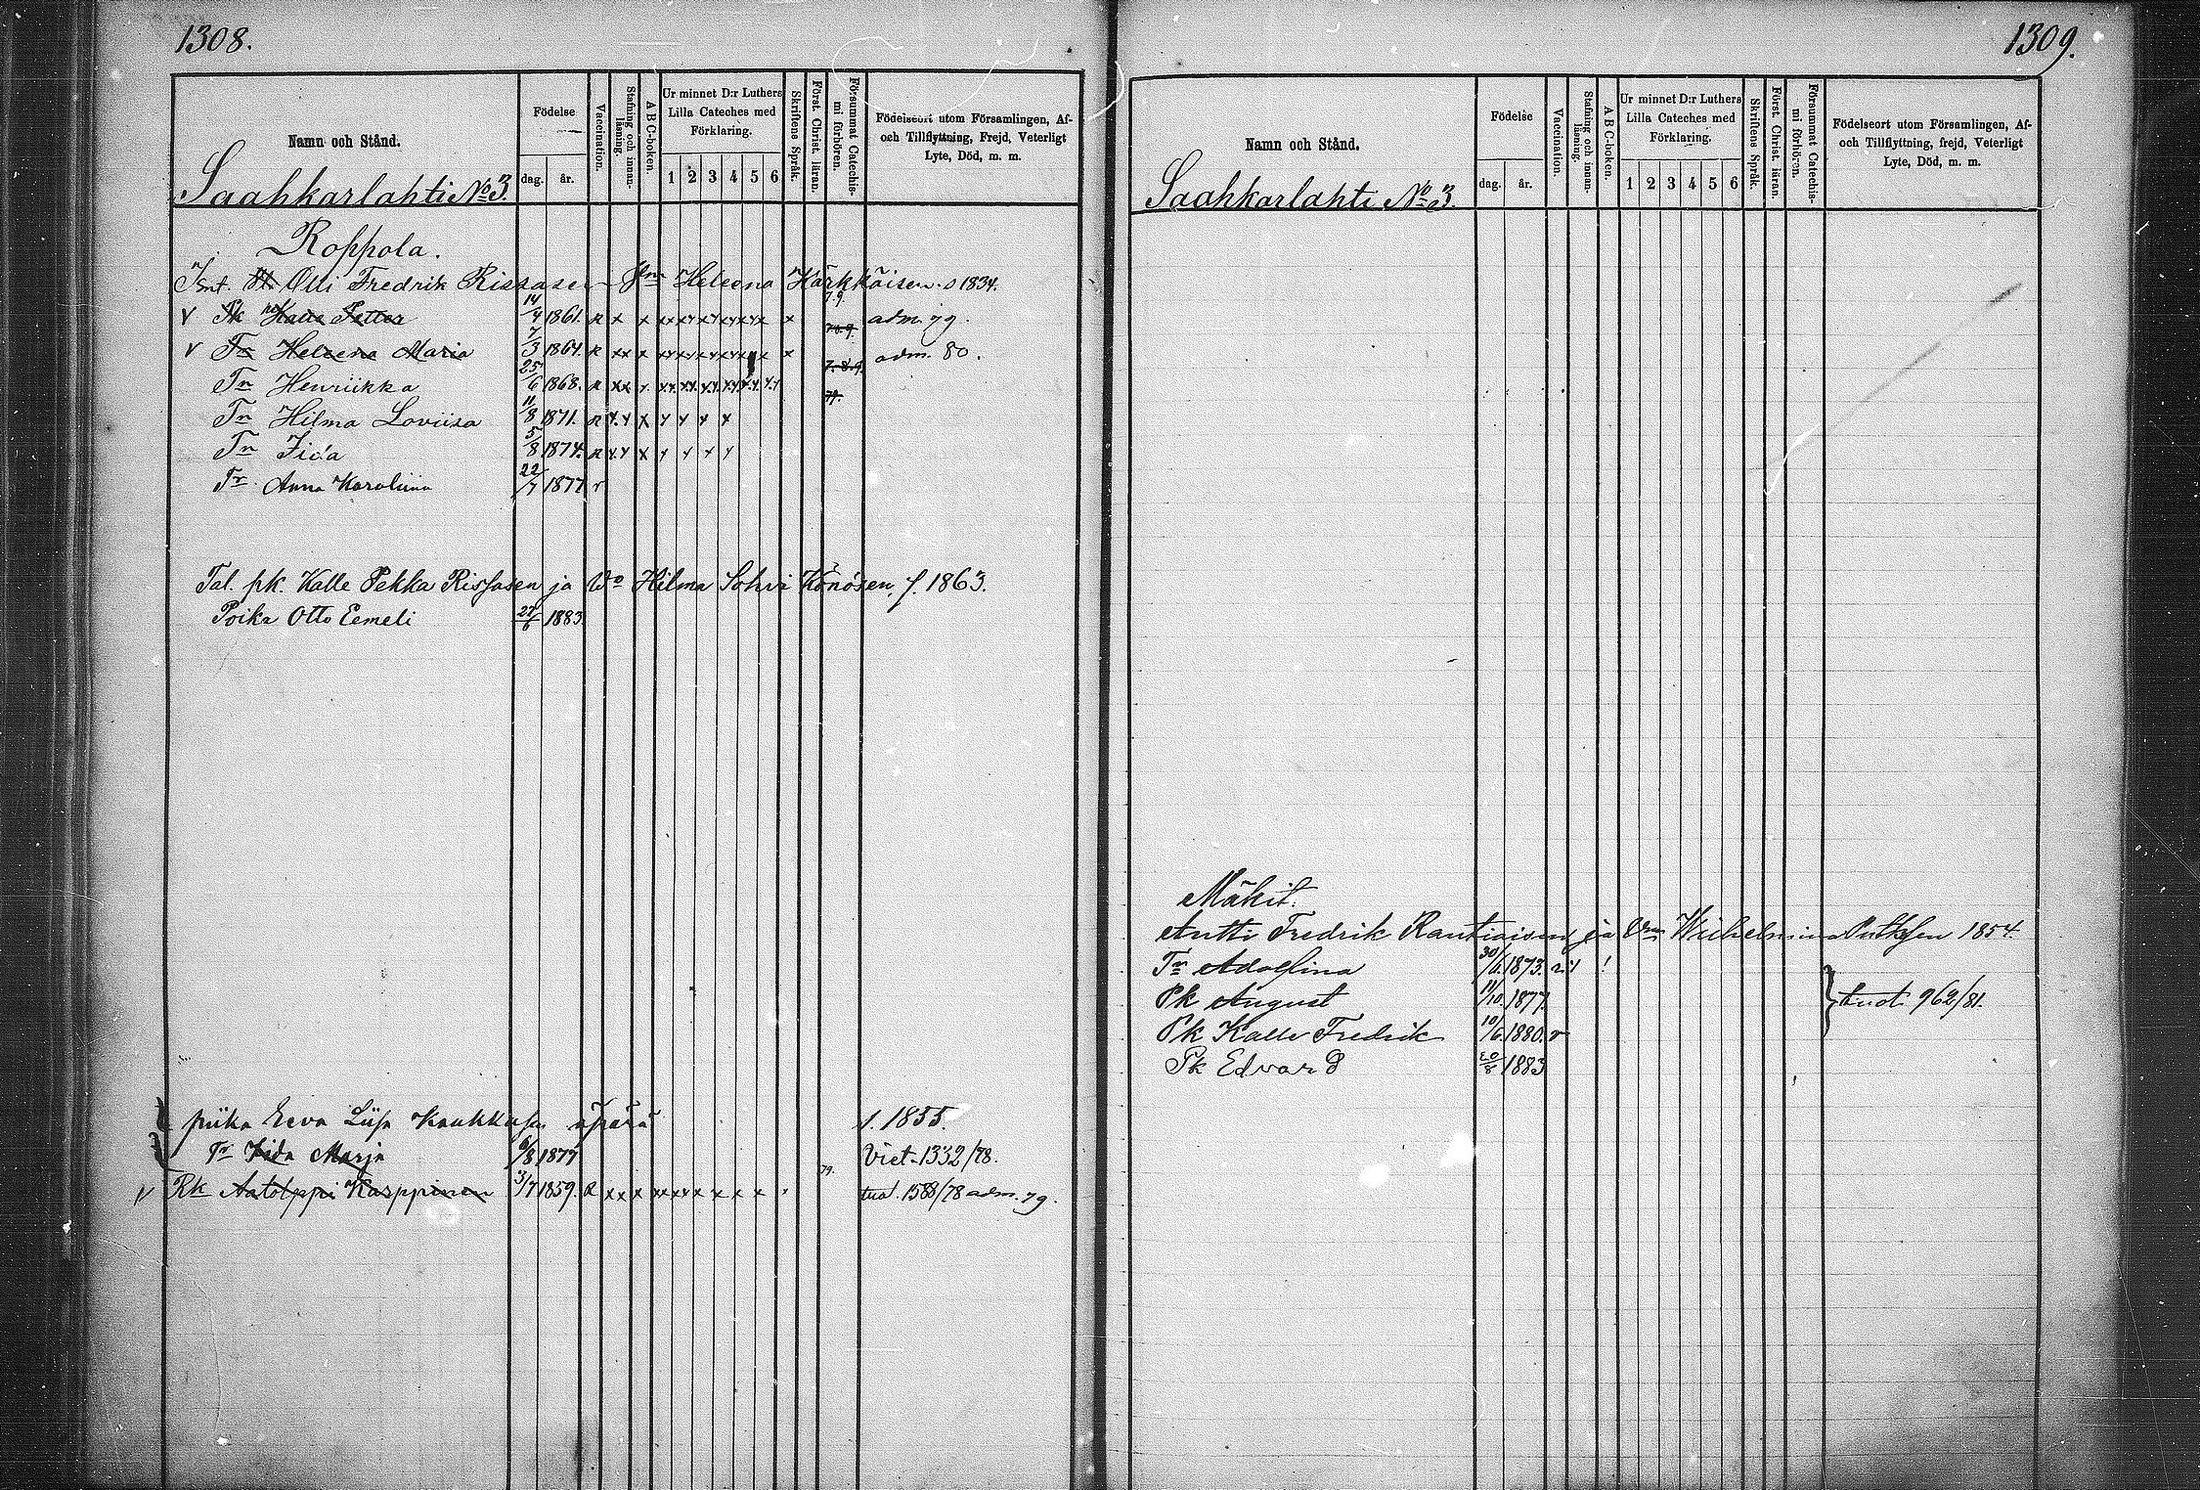 1308.
Namn och Stånd.
Födelse
dag. år.
Vaccination.
Stafning och innanläsning.
ABC-boken.
Ur minnet D:r Luthers
Lilla Cateches med
Förklaring.
1 2 3 4 5 6
Skriftens Språk.
Först. Christ. läran.
Försummat Catechismi förhören.
Födelseort utom Församlingen, Af-
och Tillflyttning, Frejd, Veterligt
Lyte, Död, m. m.
Saahkarlahti No 3.
Roppola.
Olli Fredrik Rissasen Heleena Kärkkäisen s 1834.
v Pk Kalle Petter 14/4 1861. R x x x adm. 79.
v Tr Heleena Maria 7/3 1864. R xx x adm. 80.
Tr Henriikka 25/6 1868. R xx x
Tr Hilma Loviisa 11/8 1871. R x x x x x x x
Tr Iida 5/8 1874. R x x x x x x x
Tr Anna Karoliina 22/7 1877 r
Tal. pk. Kalle Pekka Rissasen ja Vo Hilma Sohvi Könösen, s. 1863.
Poika Otto Eemeli 27/6 1883
piika Eeva Liisa äpärä s. 1855.
Tr Iida Marja 6/8 1877 Viet. 1332/78.
Rk Aatolppi Kasppinen 3/7 1859. R xx x tuot. 1588/78 adm. 79.
1309.
Namn och Stånd.
Födelse
dag. år.
Vaccination.
Stafning och innanläsning.
ABC-boken.
Ur minnet D:r Luthers
Lilla Cateches med
Förklaring.
1 2 3 4 5 6
Skriftens Språk.
Först. Christ. läran.
Försummat Catechismi förhören.
Födelseort utom Församlingen, Af-
och Tillflyttning, frejd, Veterligt
Lyte, Död, m. m.
Saahkarlahti No 3.
Mäkit.
Antti Fredrik Rautiaisen ja Vm Wilhelmina 1854.
Tr Adolfina 30/6 1873.
Pk August 11/10. 1877. tuot. 962/81.
Pk Kalle Fredrik 10/6. 1880. r
Pk Edvard 20/8 1883